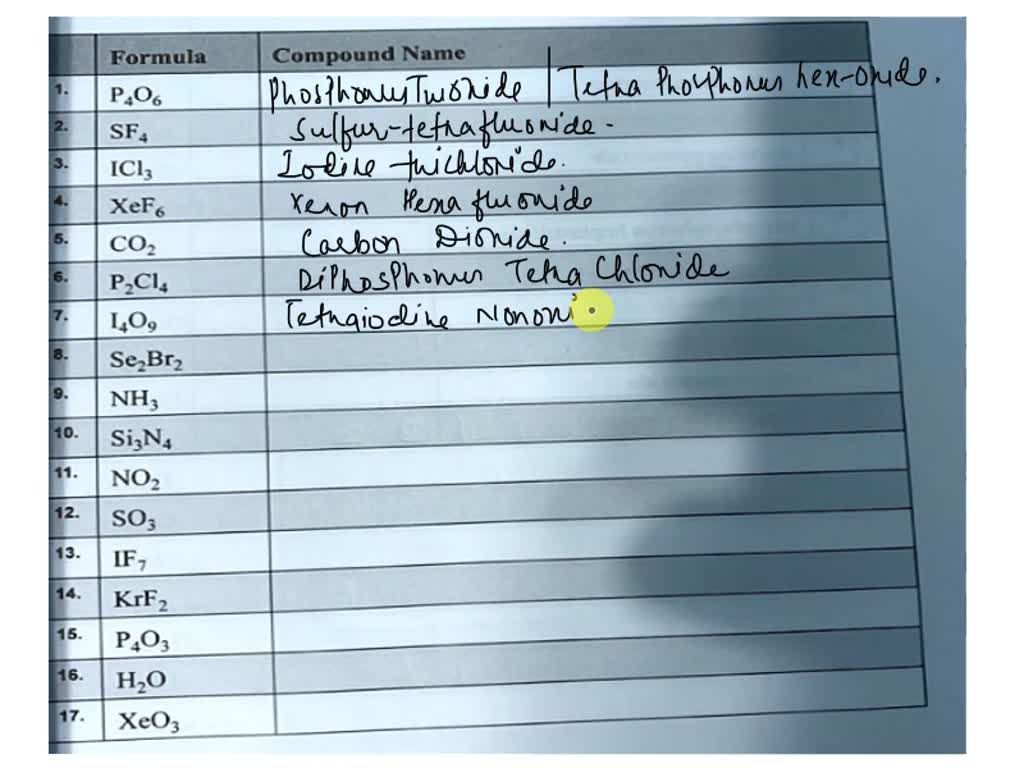 Formula Compound Name
1. P₄O₆ Phosphorus Trioxide | Tetra Phosphorus hex-oxide.
2. SF₄ Sulfur-tetrafluoride.
3. ICl₃ Iodine trichloride.
4. XeF₆ Xenon Hexafluoride
5. CO₂ Carbon Dioxide.
6. P₂Cl₄ DiPhosphorus Tetra Chloride
7. I₄O₉ Tetraiodine Nonoxi
8. Se₂Br₂
9. NH₃
10. Si₃N₄
11. NO₂
12. SO₃
13. IF₇
14. KrF₂
15. P₄O₃
16. H₂O
17. XeO₃